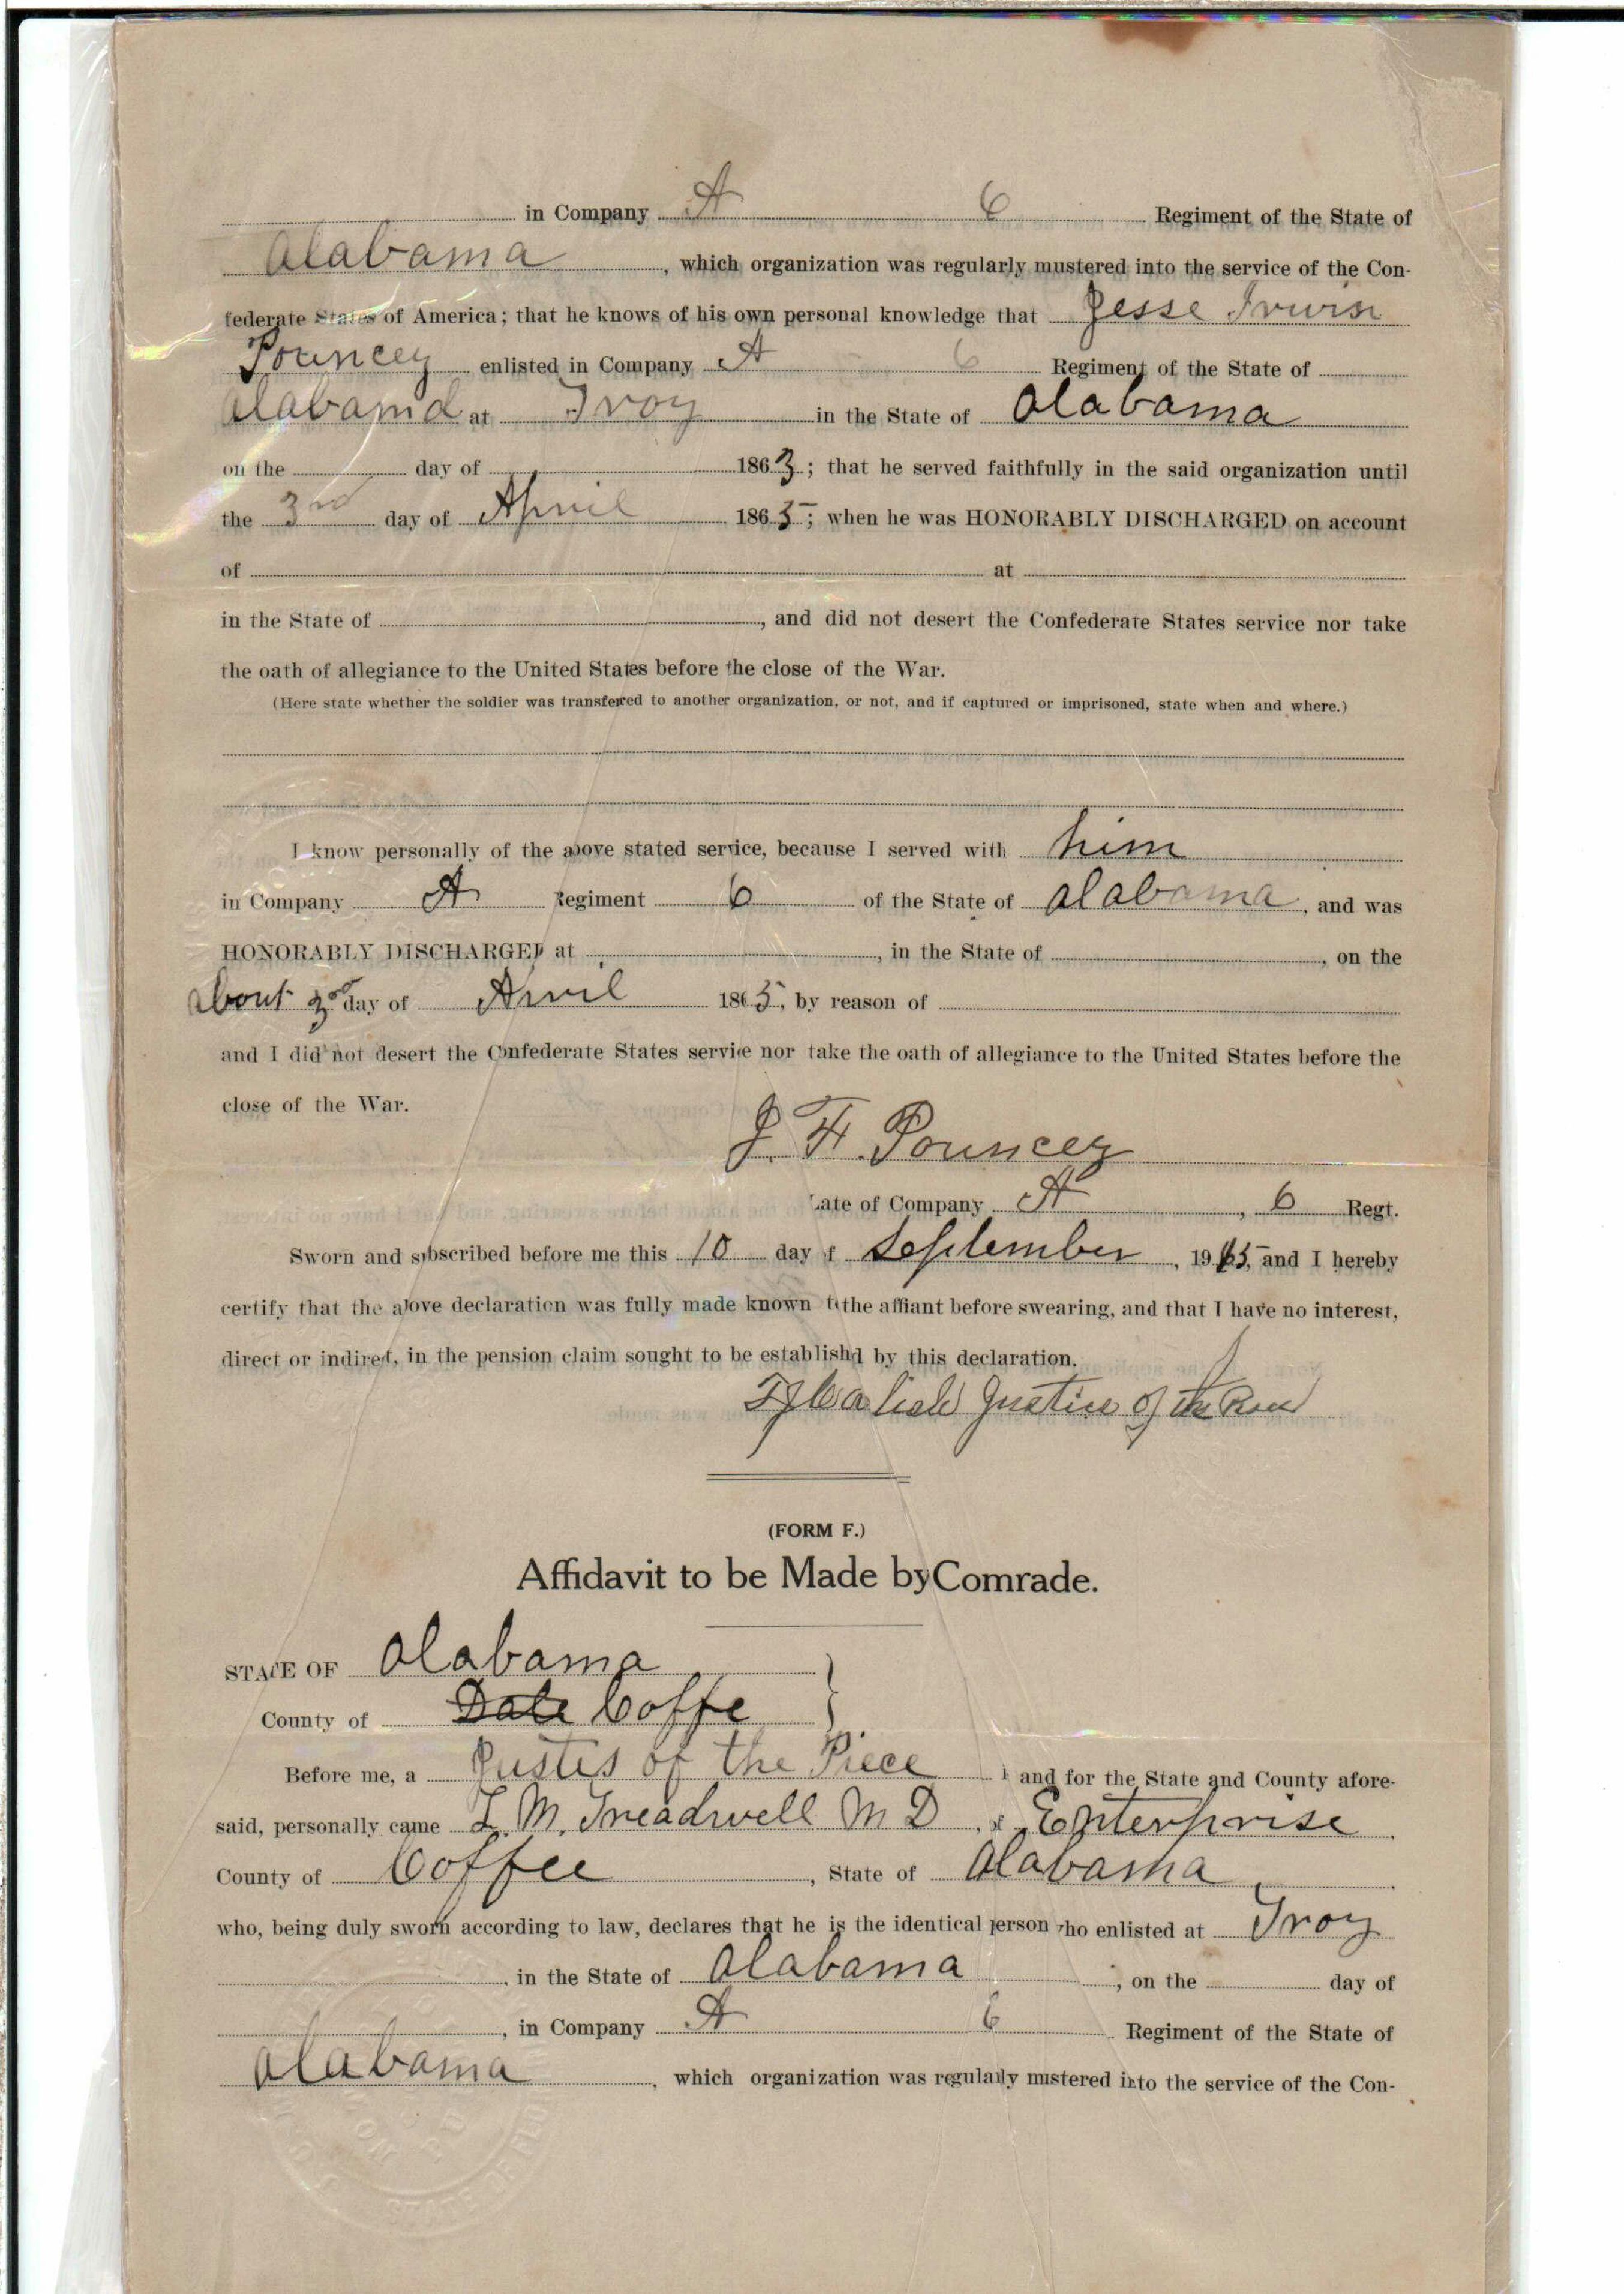 in Company A 6 Regiment of the State of
Alabama, which organization was regularly mustered into the service of the Con-
federate States of America; that he knows of his own personal knowledge that Jesse Irwin
Pouncey enlisted in Company A 6 Regiment of the State of
Alabama at Troy in the State of Alabama
on the day of 1863; that he served faithfully in the said organization until
the 3rd day of April 1865; when he was HONORABLY DISCHARGED on account
of at
in the State of , and did not desert the Confederate States service nor take
the oath of allegiance to the United States before the close of the War.
(Here state whether the soldier was transferred to another organization, or not, and if captured or imprisoned, state when and where.)
I know personally of the above stated service, because I served with him
in Company A Regiment 6 of the State of Alabama, and was
HONORABLY DISCHARGED at , in the State of , on the
about 3rd day of April 1865, by reason of
and I did not desert the Confederate States service nor take the oath of allegiance to the United States before the
close of the War.
J. F. Pouncey
Late of Company A, 6 Regt.
Sworn and subscribed before me this 10 day of September, 1915, and I hereby
certify that the above declaration was fully made known to the affiant before swearing, and that I have no interest,
direct or indirect, in the pension claim sought to be established by this declaration.
Justice of the
(FORM F.)
Affidavit to be Made by Comrade.
STATE OF Alabama
County of Dale Coffe
Before me, a Justis of the Piece in and for the State and County afore-
said, personally came L. M. Treadwell M D, of Enterprise
County of Coffee, State of Alabama,
who, being duly sworn according to law, declares that he is the identical person who enlisted at Troy
, in the State of Alabama, on the day of
, in Company A 6 Regiment of the State of
Alabama, which organization was regularly mustered into the service of the Con-